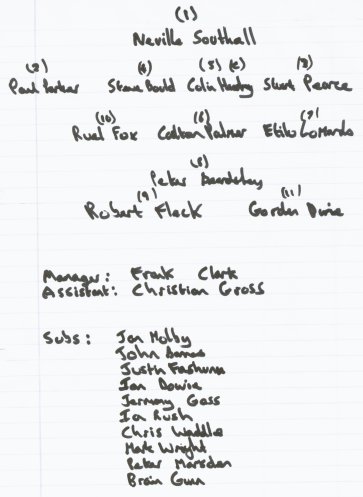 (1)
Neville Southall
(2) (4) (5) (c) (3)
Paul Parker Steve Bould Colin Hendry Stuart Pearce
(10) (6) (7)
Ruel Fox Carlton Palmer Attilo Lombardo
(8)
Peter Beardsley
(9) (11)
Robert Fleck Gordon Durie
Manager: Frank Clark
Assistant: Christian Gross
Subs: Jan Molby
John Barnes
Justin Fashunu
Ian Dowie
Jermany Goss
Ian Rush
Chris Waddle
Mark Wright
Peter Marsden
Brain Gunn